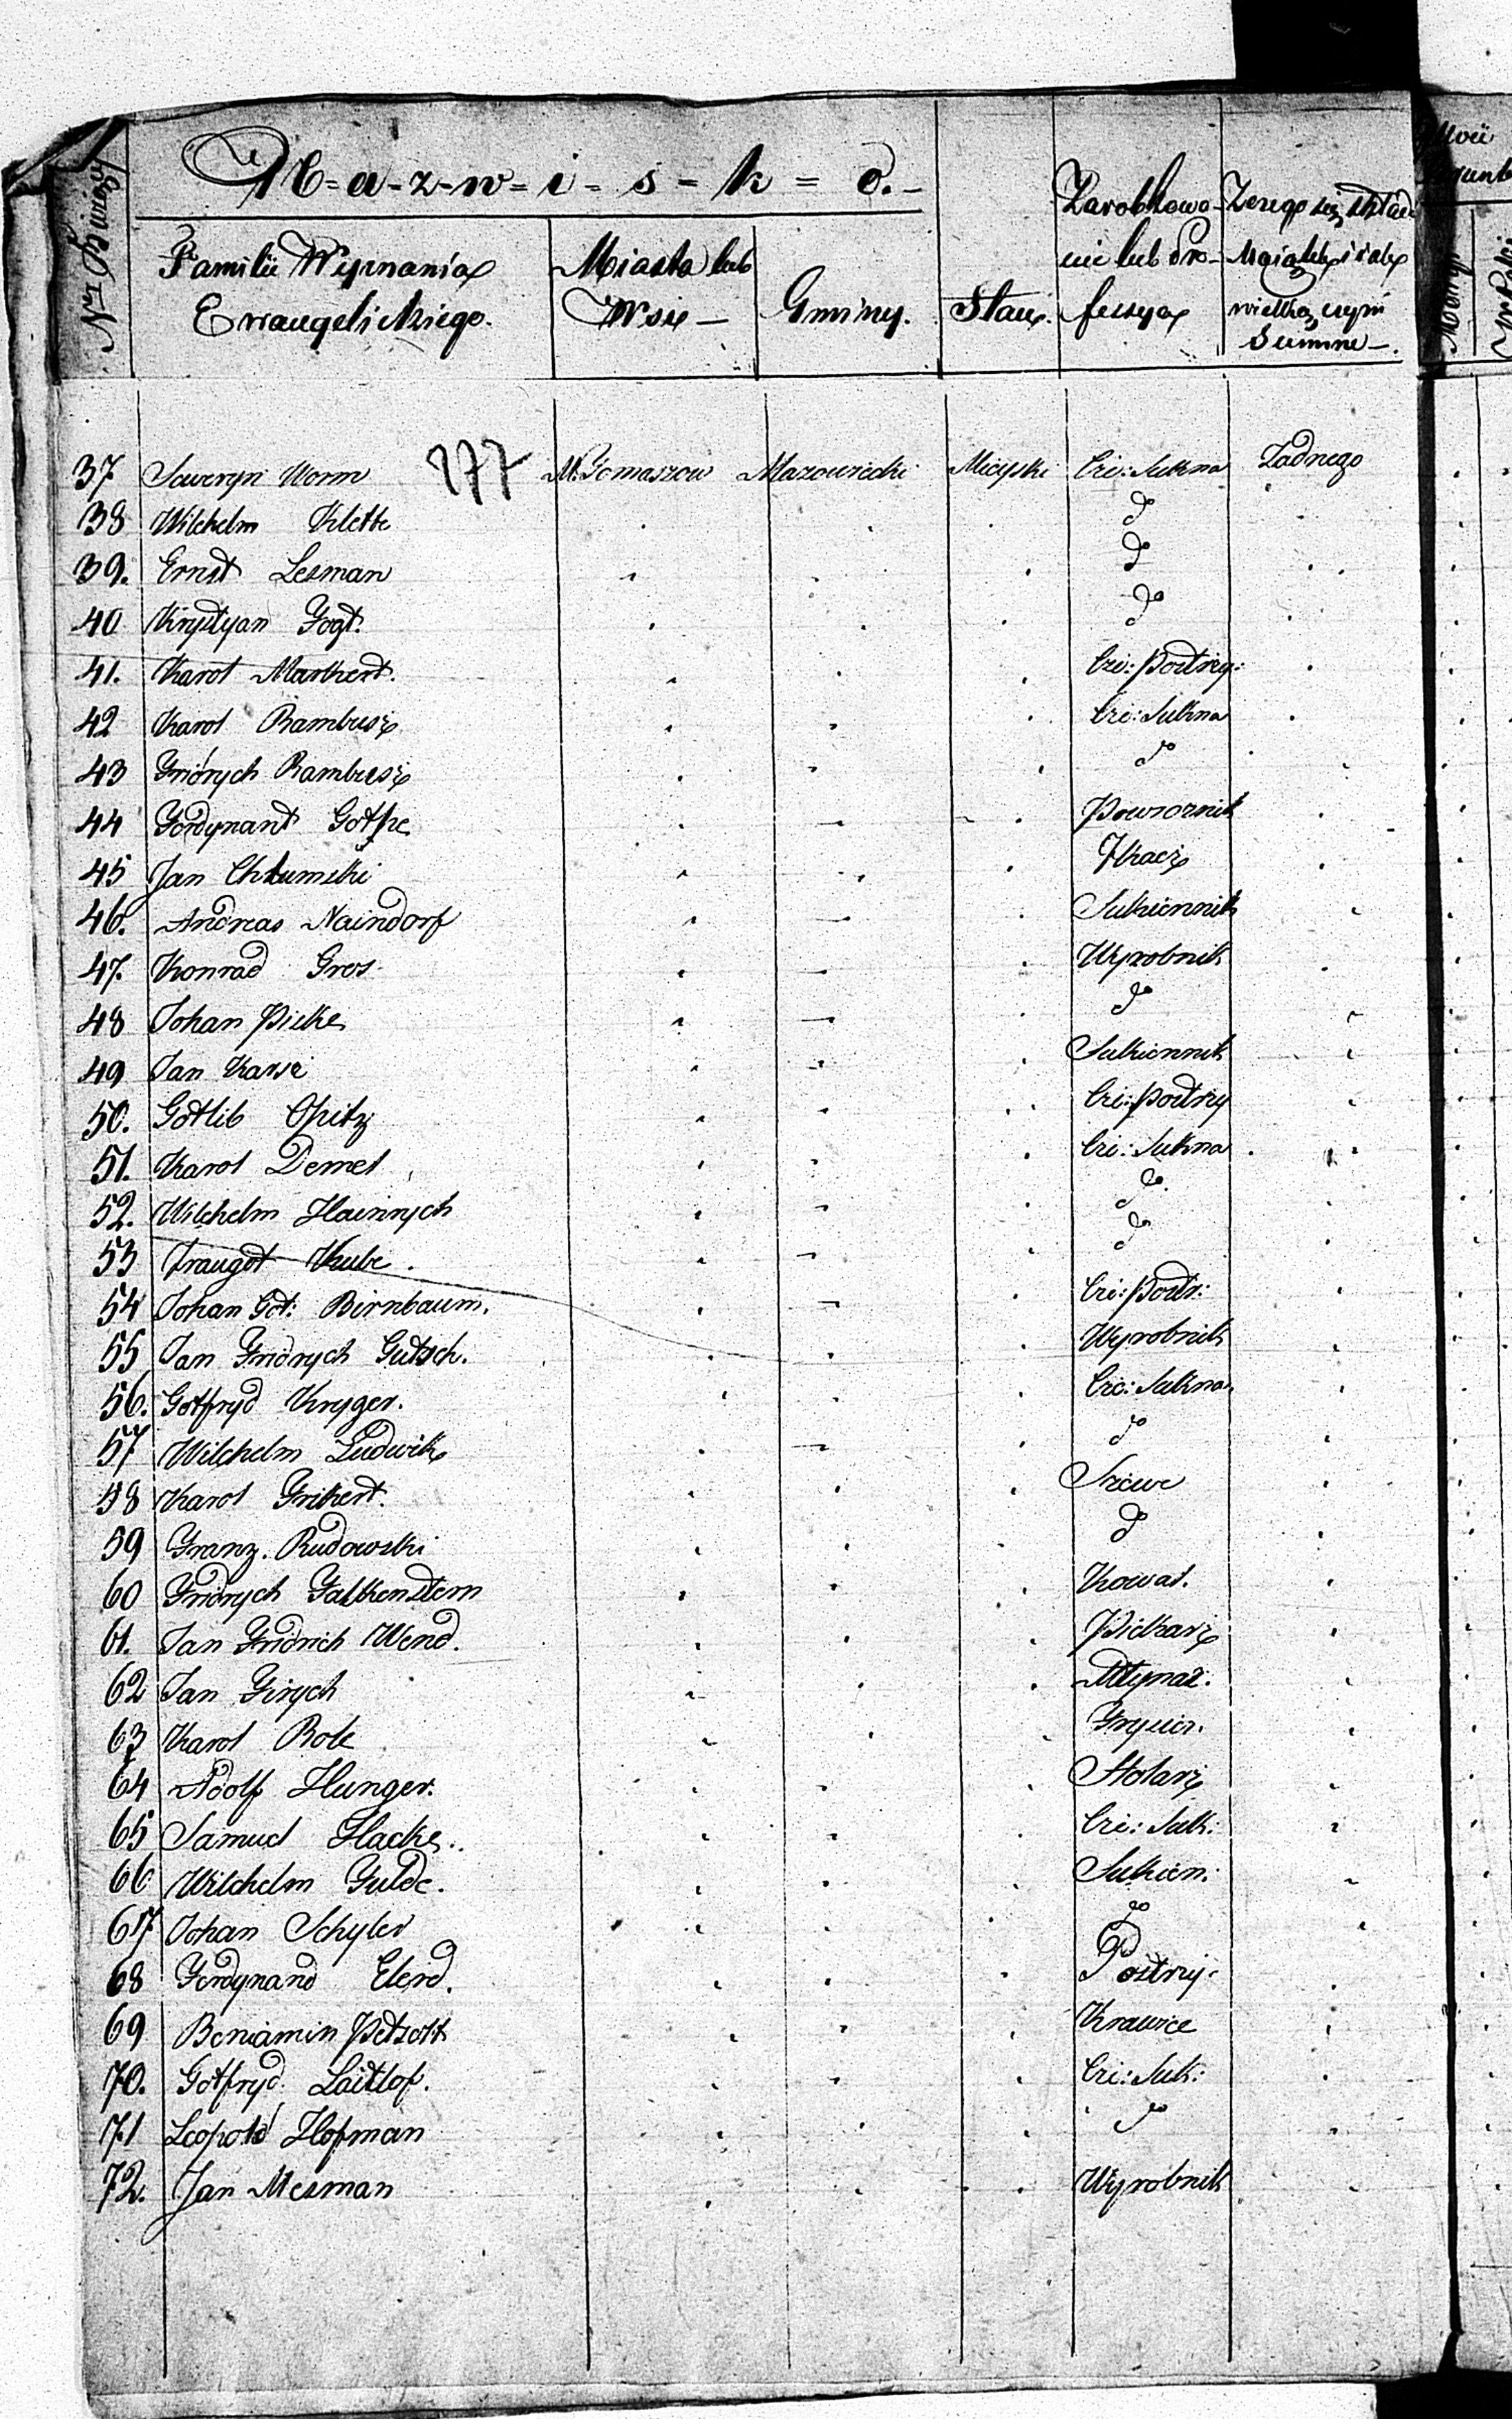 N-a-z-w-i-s-k-o.-
Familii Wyznania Ewangelickiego.
Miasta lub Wsie -
Gminy.
Stan.
Zarobkowanie lub Professya
Z czego się składa Maiątek i iaką wielką czyni Summe -.
37 Seweryn Worm 777 M. Tomaszow Mazowiecki Mieyski Cze: Sukna Żadnego
38 Wilchelm Klette do
39. Ernst Lesman do
40 Krystyan Fogt. do
41. Karol Markert. Cze: Postrzy:
42 Karol Rambusz Cze: Sukna
43 Fridrych Rambusz do
44 Ferdynant Gothe Powroznik
45 Jan Chlumski Tkacz
46. Andreas Naindorf Sukiennik
47. Konrad Gros. Wyrobnik
48 Johan Pielke do
49 Jan Karse Sukiennik
50. Gotlib Opitz Cze: Postrzy
51. Karol Demel Cze: Sukna
52. Wilchelm Hainrych do
53 Traugot Kube. do
54 Johan Got: Birnbaum. Cze: Postr:
55 Jan Fridrych Gutsch. Wyrobnik
56. Gotfryd Kryger. Cze: Sukna
57 Wilchelm Ludwik do
58 Karol Frikert. Szewc
59 Franz. Rudowski do
60 Fridrych Falkenstern Kowal.
61. Jan Fridrich Wend. Piekarz
62 Jan Firych Młynaż.
63 Karol Role Fryzier.
64 Adolf Hunger. Stolarz
65 Samuel Hacke. Cze: Suk:
66 Wilchelm Gulde. Sukien:
67 Johan Schyler do
68 Ferdynand Elerd. Postrzy.
69 Beniamin Petzolt Krawiec
70. Gotfryd Laitlof. Cze: Suk:
71 Leopold Hofman do
72. Jan Mesman Wyrobnik